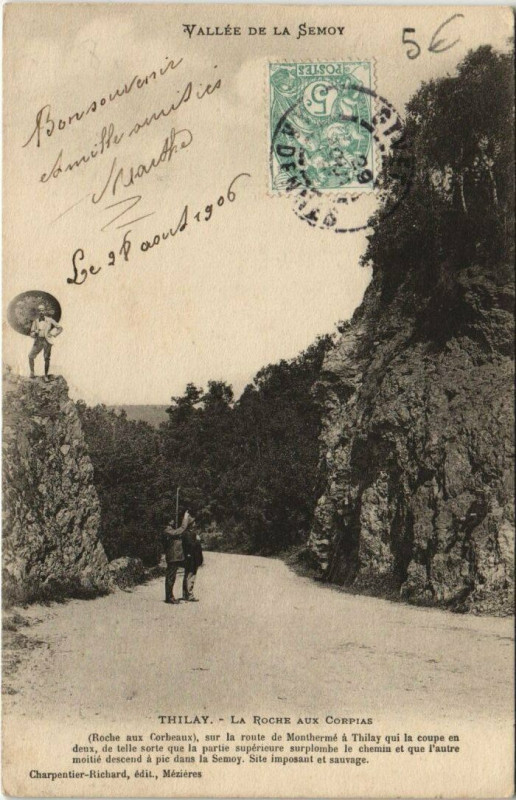 VALLÉE DE LA SEMOY
5€
Bon souvenir
et mille amitiés
Marthe
Le 28 aout 1906
POSTES
5
GIVET
ARDENNES
THILAY. - LA ROCHE AUX CORPIAS
(Roche aux Corbeaux), sur la route de Monthermé à Thilay qui la coupe en
deux, de telle sorte que la partie supérieure surplombe le chemin et que l'autre
moitié descend à pic dans la Semoy. Site imposant et sauvage.
Charpentier-Richard, édit., Mézières